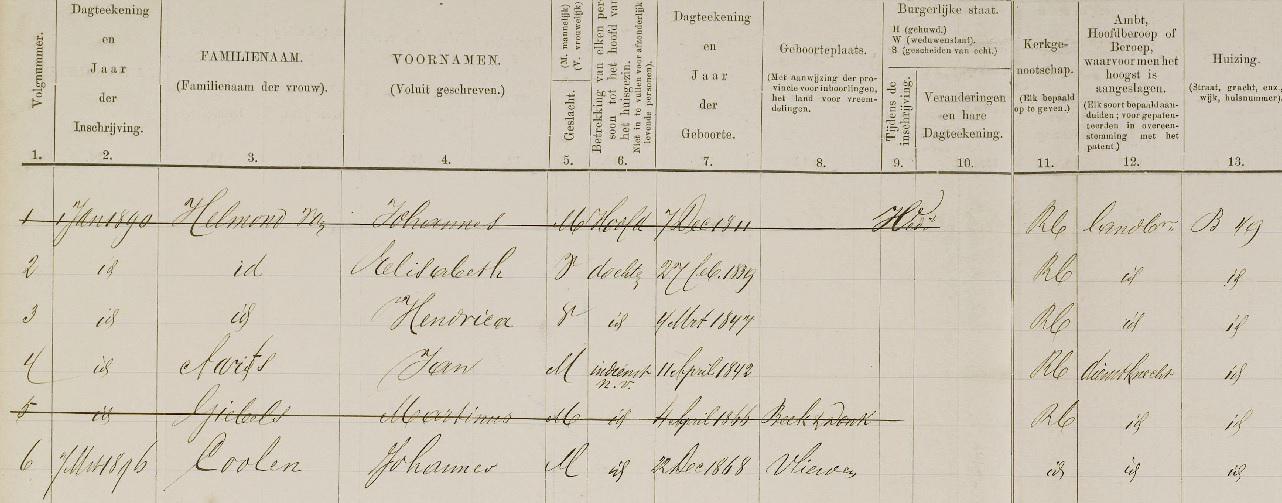 Volgnummer.
Dagteekening
en
Jaar
der
Inschrijving.
FAMILIENAAM.
(Familienaam der vrouw).
VOORNAMEN.
(Voluit geschreven.)
(M. mannelijk)
(V. vrouwelijk)
Geslacht.
Betrekking van elken per-
soon tot het hoofd van
het huisgezin.
Niet in te vullen voor afzonderlijk
levende personen).
Dagteekening
en
Jaar
der
Geboorte.
Geboorteplaats.
(Met aanwijzing der pro-
vincie voor inboorlingen,
het land voor vreem-
delingen.
Burgerlijke staat.
H (gehuwd.)
W (weduwenstaat).
S (gescheiden van echt.)
Tijdens de
inschrijving.
Veranderingen
en hare
Dagteekening.
Kerkge-
nootschap.
(Elk bepaald
op te geven.)
Ambt,
Hoofdberoep of
Beroep,
waarvoor men het
hoogst is
aangeslagen.
(Elk soort bepaald aan-
duiden; voor gepaten-
teerden in overeen-
stemming met het
patent.)
Huizing.
(Straat, gracht, enz.,
wijk, huisnummer).
1. 2. 3. 4. 5. 6. 7. 8. 9. 10. 11. 12. 13.
1 1 Jan 1890 Helmond Johannes M Hoofd 7 Dec 1811 RC B 49
2 id id Elisabeth V 27 feb. 1839 RC id id
3 id id Hendrica V id 4 Mrt 1847 RC id id
4 id Jan M indienst
n.v. 11 April 1842 RC dienstknecht id
5 id Giebels Martinus M id 4 April 1866 Beek & Donk RC id id
6 Mrt 1896 Coolen Johannes M id 22 Dec 1868 Vlierden id id id